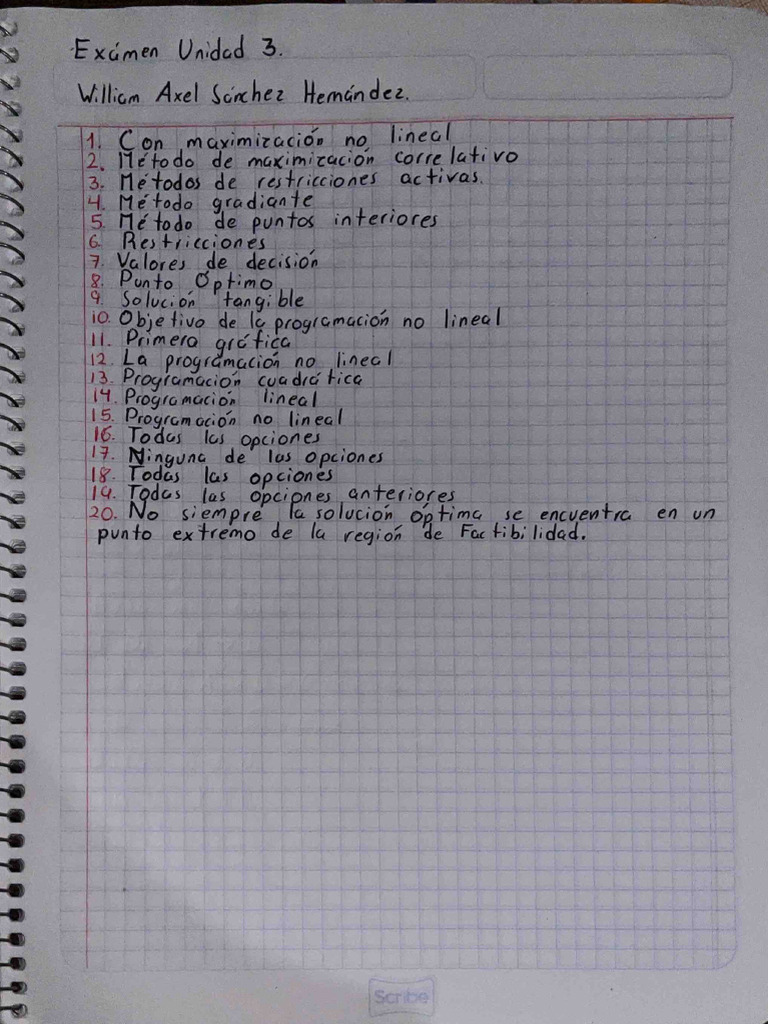 Exámen Unidad 3.
William Axel Sánchez Hernández.
1. Con maximización no lineal
2. Método de maximización correlativo
3. Métodos de restricciones activas.
4. Método gradiante
5. Método de puntos interiores
6. Restricciones
7. Valores de decisión
8. Punto Óptimo
9. Solución tangible
10. Objetivo de la programación no lineal
11. Primera gráfica
12. La programación no lineal
13. Programación cuadrática
14. Programación lineal
15. Programación no lineal
16. Todas las opciones
17. Ninguna de las opciones
18. Todas las opciones
19. Todas las opciones anteriores
20. No siempre la solución óptima se encuentra en un
punto extremo de la región de Factibilidad.
Scribe